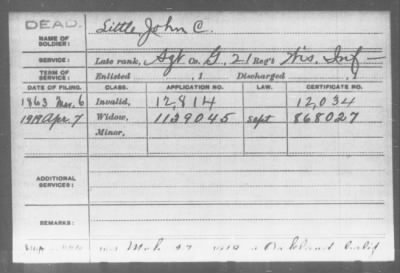 DEAD.
NAME OF SOLDIER: Little John C.
SERVICE: Late rank, Sgt Co. G, 21 Reg't Wis. Inf —
TERM OF SERVICE: Enlisted , 1 Discharged , 1
DATE OF FILING. CLASS. APPLICATION NO. LAW. CERTIFICATE NO.
1863 Mar. 6 Invalid, 12,814 12,034
1919 Apr. 7 Widow, 1139045 Sept 868027
Minor,
ADDITIONAL SERVICES:
REMARKS:
Mch 27 1919 Oakland Calif